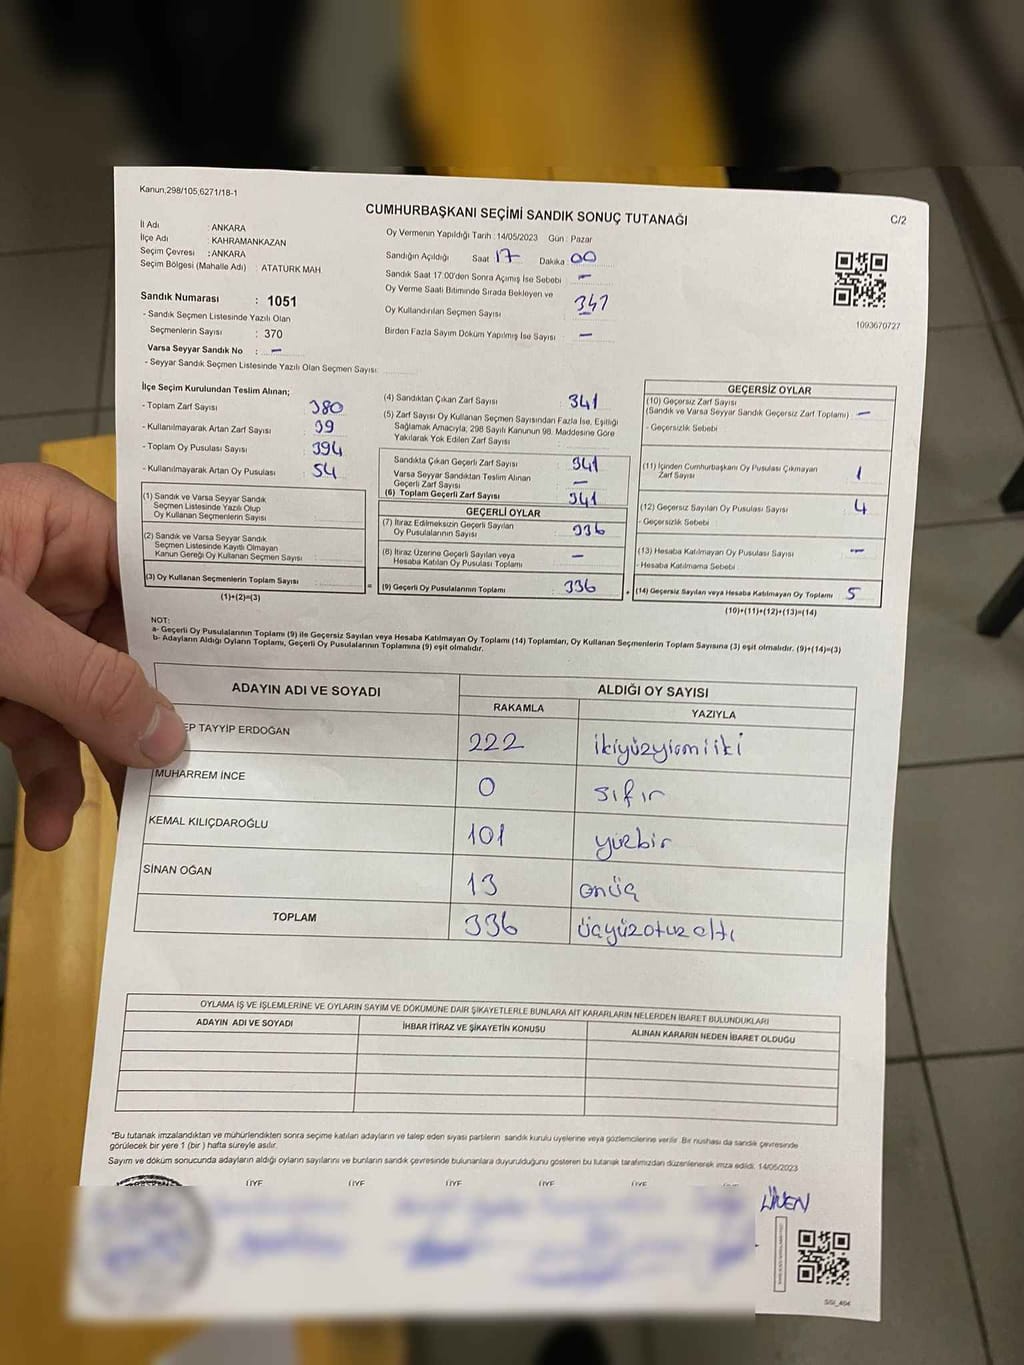 Kanun,298/105,6271/18-1
C/2
CUMHURBAŞKANI SEÇİMİ SANDIK SONUÇ TUTANAĞI
İl Adı : ANKARA
İlçe Adı : KAHRAMANKAZAN
Seçim Çevresi : ANKARA
Seçim Bölgesi (Mahalle Adı) : ATATURK MAH
Sandık Numarası : 1051
- Sandık Seçmen Listesinde Yazılı Olan
Seçmenlerin Sayısı : 370
Varsa Seyyar Sandık No : –
- Seyyar Sandık Seçmen Listesinde Yazılı Olan Seçmen Sayısı:
Oy Vermenin Yapıldığı Tarih : 14/05/2023 Gün : Pazar
Sandığın Açıldığı Saat 17 Dakika 00
Sandık Saat 17:00'den Sonra Açımış İse Sebebi –
Oy Verme Saati Bitiminde Sırada Bekleyen ve
Oy Kullandırılan Seçmen Sayısı 341
Birden Fazla Sayım Döküm Yapılmış İse Sayısı –
1093670727
İlçe Seçim Kurulundan Teslim Alınan;
- Toplam Zarf Sayısı 380
- Kullanılmayarak Artan Zarf Sayısı 39
- Toplam Oy Pusulası Sayısı 394
- Kullanılmayarak Artan Oy Pusulası 54
(1) Sandık ve Varsa Seyyar Sandık
Seçmen Listesinde Yazılı Olup
Oy Kullanan Seçmenlerin Sayısı
(2) Sandık ve Varsa Seyyar Sandık
Seçmen Listesinde Kayıtlı Olmayan
Kanun Gereği Oy Kullanan Seçmen Sayısı
(3) Oy Kullanan Seçmenlerin Toplam Sayısı
(1)+(2)=(3)
(4) Sandıktan Çıkan Zarf Sayısı 341
(5) Zarf Sayısı Oy Kullanan Seçmen Sayısından Fazla İse, Eşitliği
Sağlamak Amacıyla; 298 Sayılı Kanunun 98. Maddesine Göre
Yakılarak Yok Edilen Zarf Sayısı
Sandıkta Çıkan Geçerli Zarf Sayısı 341
Varsa Seyyar Sandıktan Teslim Alınan
Geçerli Zarf Sayısı –
(6) Toplam Geçerli Zarf Sayısı 341
GEÇERLİ OYLAR
(7) İtiraz Edilmeksizin Geçerli Sayılan
Oy Pusulalarının Sayısı 336
(8) İtiraz Üzerine Geçerli Sayılan veya
Hesaba Katılan Oy Pusulası Toplamı –
= (9) Geçerli Oy Pusulalarının Toplamı 336
GEÇERSİZ OYLAR
(10) Geçersiz Zarf Sayısı
(Sandık ve Varsa Seyyar Sandık Geçersiz Zarf Toplamı) –
- Geçersizlik Sebebi
(11) İçinden Cumhurbaşkanı Oy Pusulası Çıkmayan
Zarf Sayısı 1
(12) Geçersiz Sayılan Oy Pusulası Sayısı 4
- Geçersizlik Sebebi
(13) Hesaba Katılmayan Oy Pusulası Sayısı –
- Hesaba Katılmama Sebebi
+ (14) Geçersiz Sayılan veya Hesaba Katılmayan Oy Toplamı 5
(10)+(11)+(12)+(13)=(14)
NOT:
a- Geçerli Oy Pusulalarının Toplamı (9) ile Geçersiz Sayılan veya Hesaba Katılmayan Oy Toplamı (14) Toplamları, Oy Kullanan Seçmenlerin Toplam Sayısına (3) eşit olmalıdır. (9)+(14)=(3)
b- Adayların Aldığı Oyların Toplamı, Geçerli Oy Pusulalarının Toplamına (9) eşit olmalıdır.
ADAYIN ADI VE SOYADI ALDIĞI OY SAYISI
RAKAMLA YAZIYLA
EP TAYYİP ERDOĞAN 222 ikiyüzyirmiiki
MUHARREM İNCE 0 sıfır
KEMAL KILIÇDAROĞLU 101 yüzbir
SİNAN OĞAN 13 onüç
TOPLAM 336 üçyüzotuzaltı
OYLAMA İŞ VE İŞLEMLERİNE VE OYLARIN SAYIM VE DÖKÜMÜNE DAİR ŞİKAYETLERLE BUNLARA AİT KARARLARIN NELERDEN İBARET BULUNDUKLARI
ADAYIN ADI VE SOYADI İHBAR İTİRAZ VE ŞİKAYETİN KONUSU ALINAN KARARIN NEDEN İBARET OLDUĞU
*Bu tutanak imzalandıktan ve mühürlendikten sonra seçime katılan adayların ve talep eden siyasi partilerin sandık kurulu üyelerine veya gözlemcilerine verilir. Bir nüshası da sandık çevresinde
görülecek bir yere 1 (bir) hafta süreyle asılır.
Sayım ve döküm sonucunda adayların aldığı oyların sayılarını ve bunların sandık çevresinde bulunanlara duyurulduğunu gösteren bu tutanak tarafımızdan düzenlenerek imza edildi. 14/05/2023
ÜYE ÜYE ÜYE ÜYE ÜYE